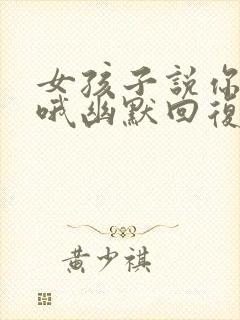 女孩子說你
哦幽默回復
黃少祺